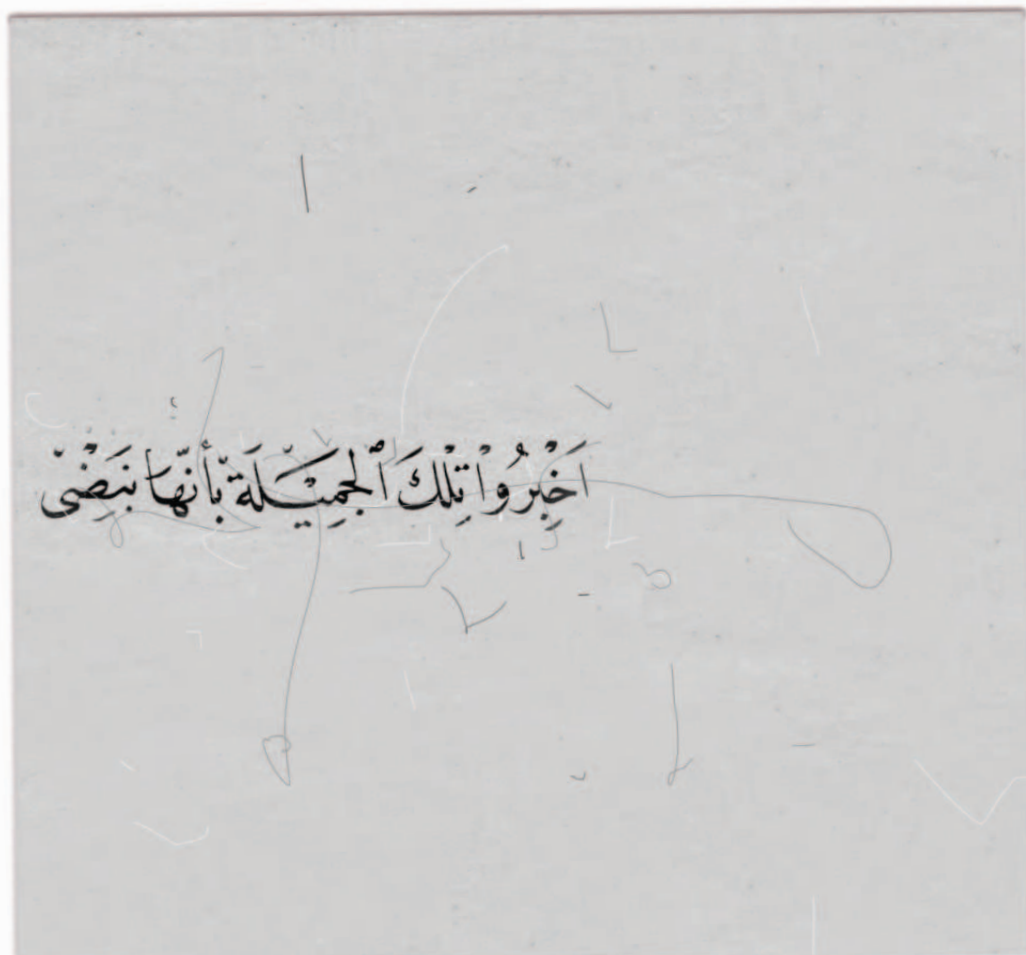 اَخْبِرُوْا تِلْكَ ٱلْجَمِيْلَةَ بأنّها نَبَضْيّ